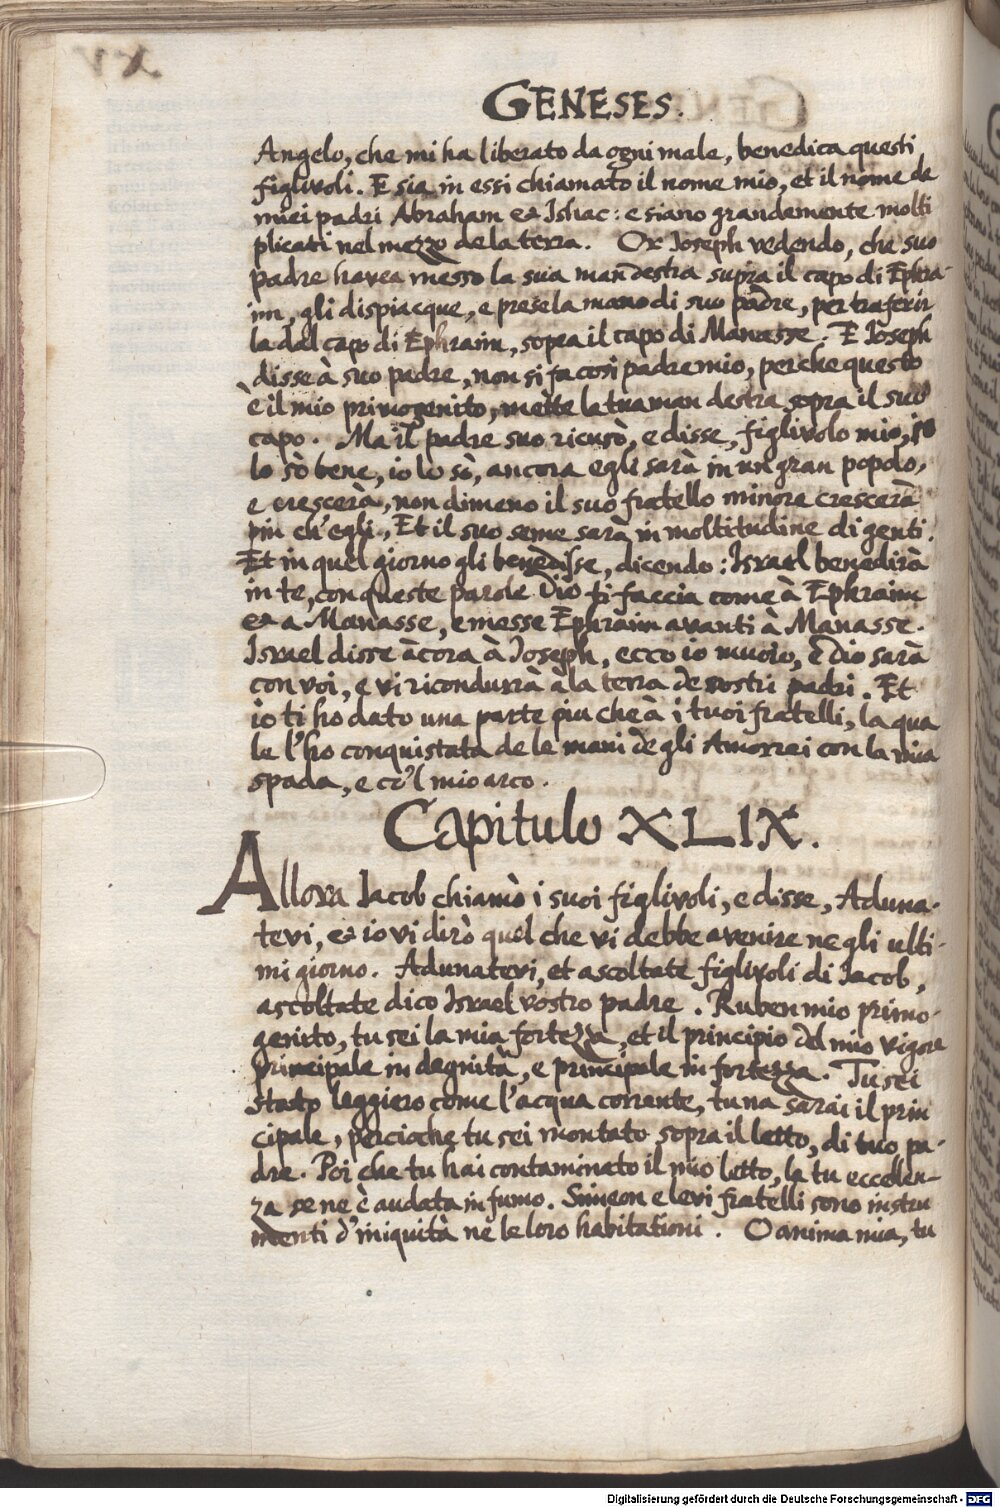 GENESES.
Angelo, che mi ha liberato da ogni male, benedica questi
figlivoli. E sia in essi chiamato il nome mio, et il nome de
miei padri Abraham et Ishac: e siano grandamente molti
plicati nel mezzo de la terra. Or Joseph vedendo, che suo
padre havea messo la sua man destra supra il capo di Ephra-
im, gli dispiacque, e prese la mano di suo padre, per traferir
la dal capo di Ephraim, sopra il capo di Manasse. E Joseph
disse à suo padre, non si fa così padre mio, perche questo
è il mio primogenito, mette la tua man destra sopra il suo
capo. Ma il padre suo ricusò, e disse, figlivolo mio, io
lo sò bene, io lo sò, ancora egli sarà in un gran popolo,
e crescerà, non dimeno il suo fratello minore crescerà
piu ch'egli, Et il suo seme sarà in moltitudine di genti.
Et in quel giorno gli benedisse, dicendo: Israel benedirà
in te, con queste parole Dio ti faccia come à Ephraim
et a Manasse, e messe Ephraim avanti à Manasse.
Israel disse àcora à Joseph, ecco io muoio, e Dio sarà
con voi, e vi ricondurrà à la terra de vostri padri. Et
io ti ho dato una parte piu che à i tuoi fratelli, la qua
le l'ho conquistata de le mani de gli Amorrei con la mia
spada, e co'l mio arco.
Capitulo XLIX.
Allora Jacob chiamò i suoi figlivoli, e disse, Aduna-
tevi, et io vi dirò quel che vi debbe avenire ne gli ulti-
mi giorno. Adunatevi, et ascoltate figlivoli di Jacob,
ascoltate dico Israel vostro padre. Ruben mio primo-
genito, tu sei la mia fortezza, et il principio del mio vigore
principale in degnità, e principale in fortezza. Tu sei
stato leggiero come l'acqua corrente, tu na sarai il prin
cipale, percioche tu sei montato sopra il letto, di tuo pa-
dre. Poi che tu hai contaminato il mio letto, la tu eccellen-
za se ne è andata in fumo. Simeon e levi fratelli sono instru
menti d'iniquità ne le loro habitationi. O anima mia, tu
Digitalisierung gefördert durch die Deutsche Forschungsgemeinschaft - DFG